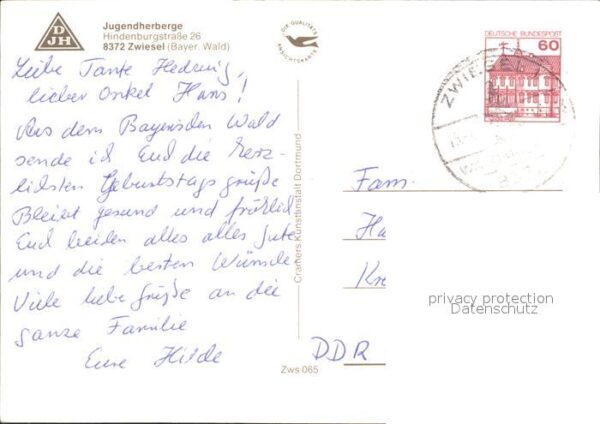 Jugendherberge
Hindenburgstraße 26
8372 Zwiesel (Bayer. Wald)
DJH
DIE QUALITÄTS
ANSICHTSKARTE
DEUTSCHE BUNDESPOST
60
ZWIESEL
Liebe Tante Hedwig,
lieber Onkel Hans!
Aus dem Bayerischen Wald
sende ich Euch die herz-
lichsten Geburtstagsgrüße
Bleibt gesund und fröhlich
Euch beiden alles alles Gute
und die besten Wünsche
Viele liebe Grüße an die
ganze Familie
Eure Hilde
Cramers Kunstanstalt Dortmund
Zws 065
Fam.
Ha
Kre
DDR
privacy protection
Datenschutz